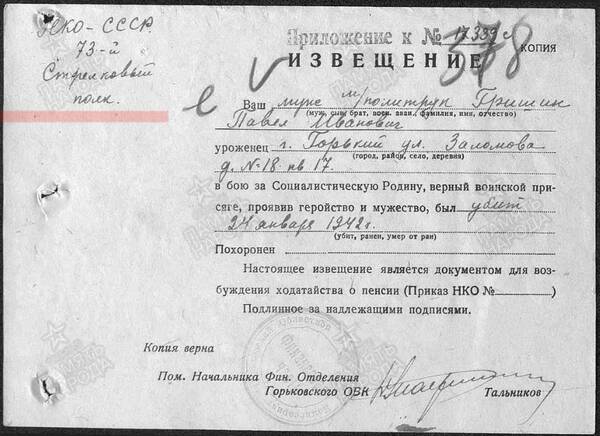 НКО-СССР
73-й
Стрелковый
полк.
Приложение к № 17339с
378
КОПИЯ
ИЗВЕЩЕНИЕ
Ваш муж м/политрук Гришин
(муж, сын, брат, воен. зван., фамилия, имя, отчество)
Павел Иванович
уроженец г. Горький ул. Заломова
(город, район, село, деревня)
д. №18 кв 17.
в бою за Социалистическую Родину, верный воинской при-
сяге, проявив геройство и мужество, был убит
24 января 1942 г.
(убит, ранен, умер от ран)
Похоронен
Настоящее извещение является документом для воз-
буждения ходатайства о пенсии (Приказ НКО №
)
Подлинное за надлежащими подписями.
Копия верна
Пом. Начальника Фин. Отделения
Горьковского ОВК
Тальников)